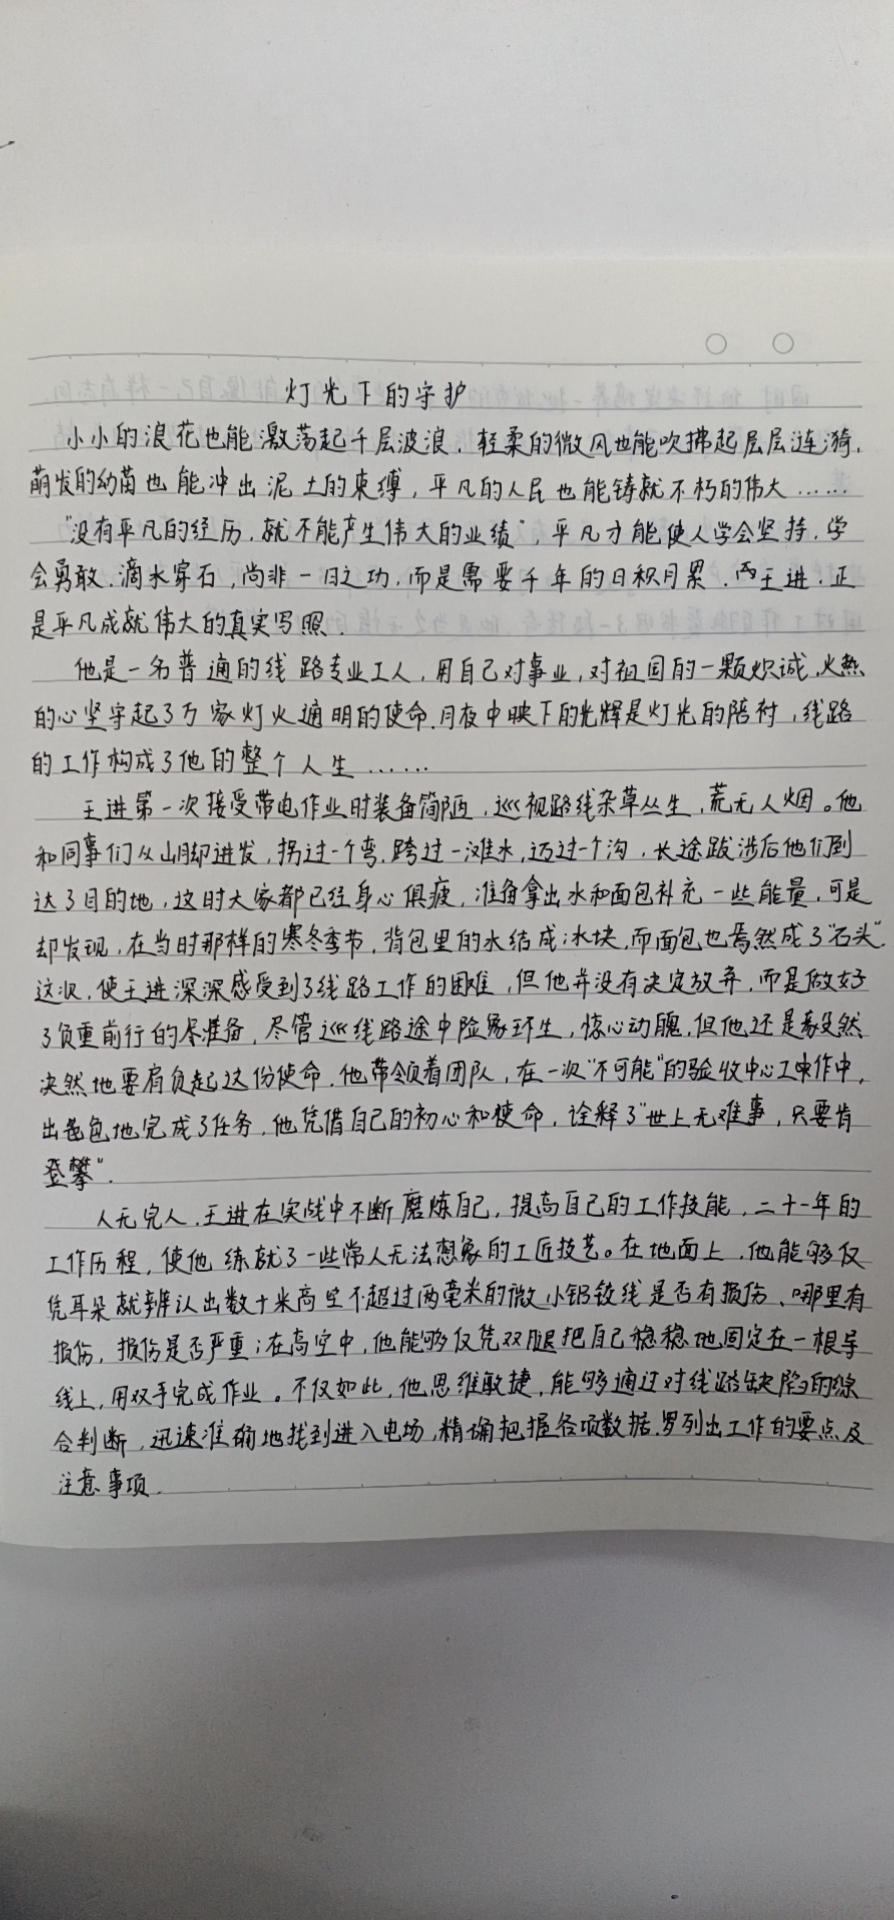 灯光下的守护
小小的浪花也能激荡起千层波浪，轻柔的微风也能吹拂起层层涟漪，
萌发的幼苗也能冲出泥土的束缚，平凡的人民也能铸就不朽的伟大……
"没有平凡的经历，就不能产生伟大的业绩"，平凡才能使人学会坚持，学
会勇敢，滴水穿石，尚非一日之功，而是需要千年的日积月累，而王进，正
是平凡成就伟大的真实写照．
他是一名普通的线路专业工人，用自己对事业，对祖国的一颗炽诚，火热
的心坚守起了万家灯火通明的使命．月夜中映下的光辉是灯光的陪衬，线路
的工作构成了他的整个人生……
王进第一次接受带电作业时装备简陋，巡视路线杂草丛生，荒无人烟。他
和同事们从山脚进发，拐过一个弯，跨过一滩水，迈过一个沟，长途跋涉后他们到
达了目的地，这时大家都已经身心俱疲，准备拿出水和面包补充一些能量，可是
却发现，在当时那样的寒冬季节，背包里的水结成冰块，而面包也焉然成了"石头"．
这次，使王进深深感受到了线路工作的困难，但他并没有决定放弃，而是做好
了负重前行的准备，尽管巡线路途中险象环生，惊心动魄，但他还是毅然
决然地要肩负起这份使命．他带领着团队，在一次"不可能"的验收中心工作中，
出色地完成了任务，他凭借自己的初心和使命，诠释了"世上无难事，只要肯
登攀"．
人无完人，王进在实战中不断磨炼自己，提高自己的工作技能，二十一年的
工作历程，使他练就了一些常人无法想象的工匠技艺。在地面上，他能够仅
凭耳朵就辨认出数十米高空不超过两毫米的微小铝铰线是否有损伤、哪里有
损伤，损伤是否严重；在高空中，他能够仅凭双腿把自己稳稳地固定在一根导
线上，用双手完成作业。不仅如此，他思维敏捷，能够通过对线路缺陷的综
合判断，迅速准确地找到进入电场，精确把握各项数据，罗列出工作的要点及
注意事项．